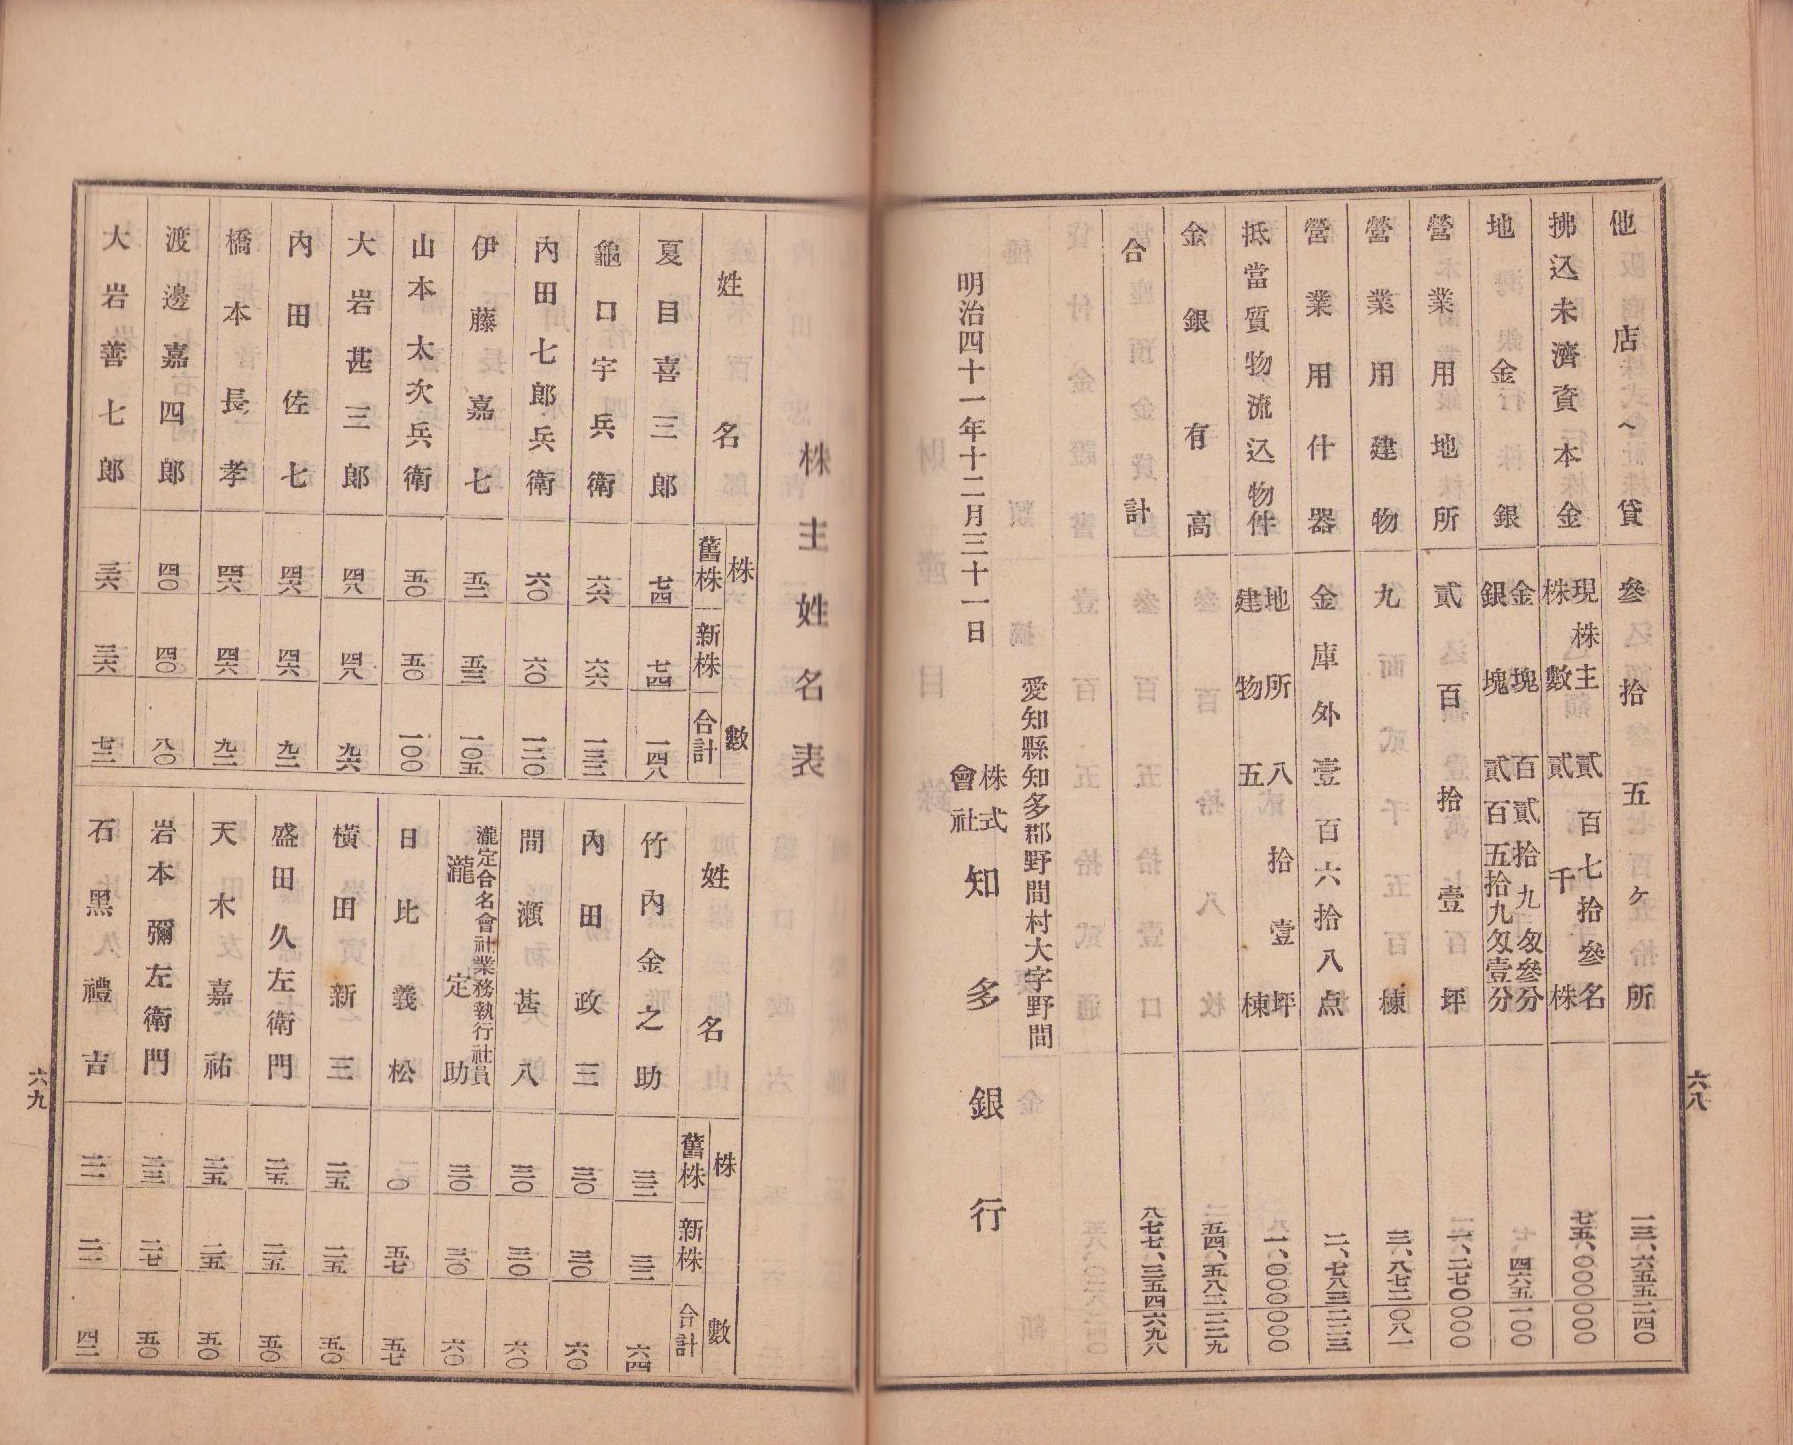 六八
他店へ貸 參拾五ヶ所 一三、六五五二四〇
拂込未濟資本金 現株主貳百七拾參名 株數貳千株 七五、〇〇〇〇〇〇
地金銀 金塊百貳拾九匁參分 銀塊貳百五拾九匁壹分 四六五一〇〇
營業用地所 貳百拾壹坪 一、二七〇〇〇〇
營業用建物 九棟 三、八七二〇八一
營業用什器 金庫外壹百六拾八点 二、七八三二二三
抵當質物流込物件 地所八拾壹坪 建物五棟 一、〇〇〇〇〇〇
金銀有高 五四、五八三二二九
合計 八七七、三五四六九八
明治四十一年十二月三十一日
愛知縣知多郡野間村大字野間
株式會社知多銀行
株主姓名表
姓名 株數 舊株 新株 合計
夏目喜三郎 七四 七四 一四八
龜口宇兵衛 六六 六六 一三二
內田七郎兵衛 六〇 六〇 一二〇
伊藤嘉七 五二 五三 一〇五
山本太次兵衛 五〇 五〇 一〇〇
大岩甚三郎 四八 四八 九六
內田佐七 四六 四六 九二
橋本長孝 四六 四六 九二
渡邊嘉四郎 四〇 四〇 八〇
大岩善七郎 三六 三六 七二
姓名 株數 舊株 新株 合計
竹內金之助 三二 三二 六四
內田政三 三〇 三〇 六〇
間瀨甚八 三〇 三〇 六〇
瀧定合名會社業務執行社員 瀧定助 三〇 三〇 六〇
日比義松 〇 五七 五七
橫田新三 二五 二五 五〇
盛田久左衛門 二五 二五 五〇
天木嘉祐 二五 二五 五〇
岩本彌左衛門 二三 二七 五〇
石黑禮吉 二一 二一 四二
六九